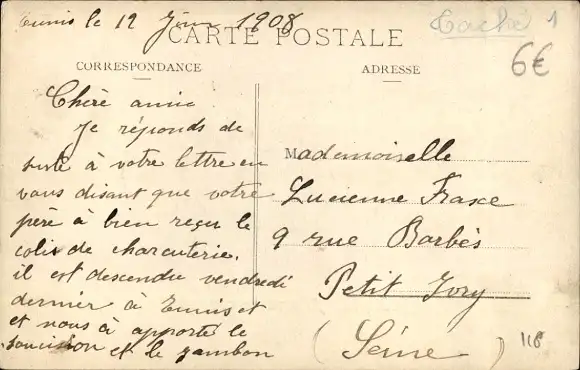 Tunis le 12 Juin 1908
CARTE POSTALE
Taché 1
6€
CORRESPONDANCE
ADRESSE
Chère amie
Je réponds de
suite à votre lettre en
vous disant que votre
père à bien reçu le
colis de charcuterie.
il est descendu vendredi
dernier à Tunis et
et nous à apporté le
saucisson et le jambon
Mademoiselle
Lucienne
9 rue Barbès
Petit Ivry
(Seine)
118